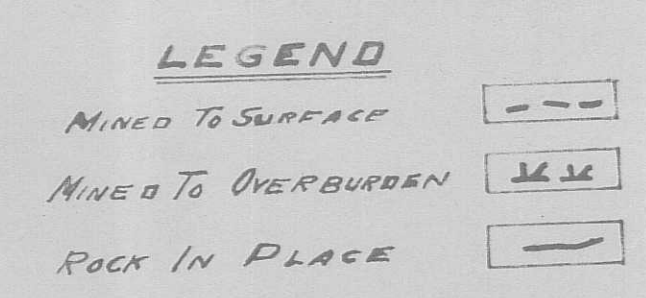 LEGEND
MINED TO SURFACE
MINED TO OVERBURDEN
ROCK IN PLACE